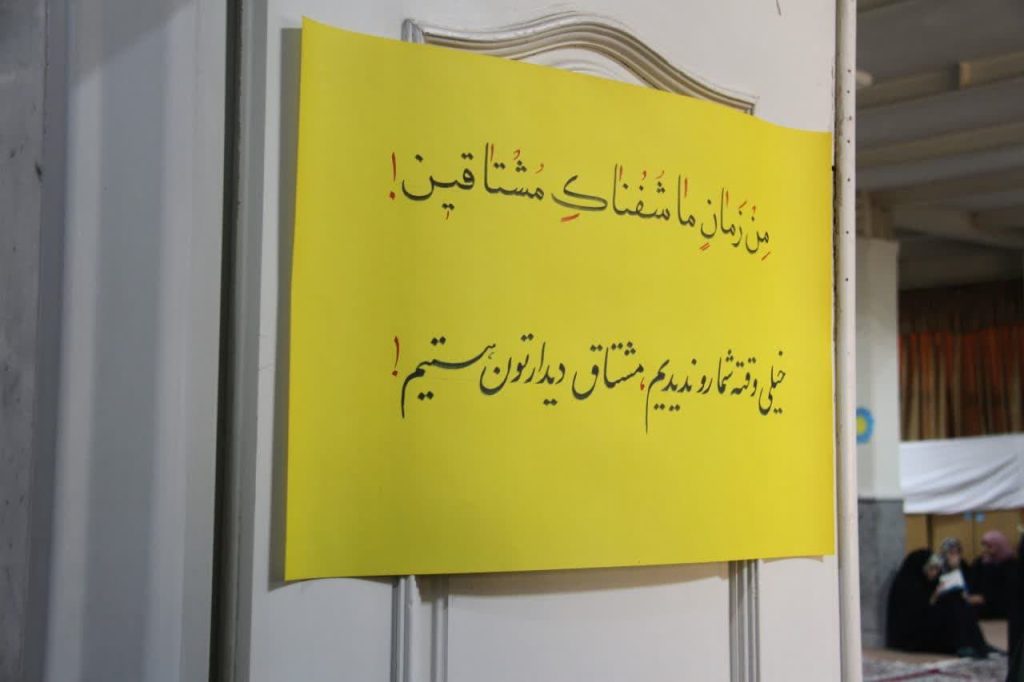 مِنْ زَمٰانٍ مٰا شُفْنٰاكِ مُشْتٰاقین!
خیلی وقته شما رو ندیدیم، مشتاق دیدارتون هستیم!